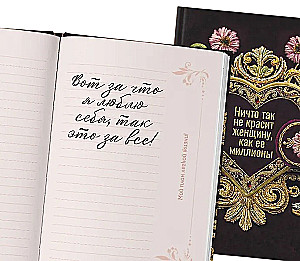 Вот за что
я люблю
себя, так
это за все!
Мой план легкой жизни!
Ничто так
не красит
женщину,
как ее
миллионы